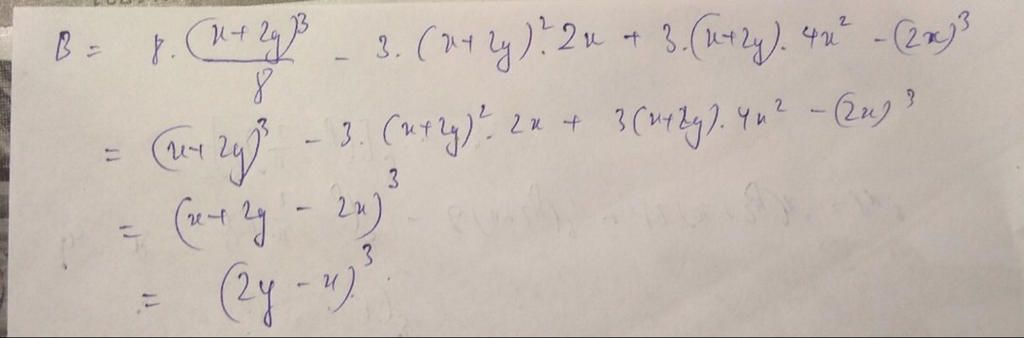 B = 8. (x+2y)³/8 - 3. (x+2y)². 2x + 3.(x+2y). 4x² - (2x)³
= (x+2y)³ - 3. (x+2y)². 2x + 3(x+2y). 4x² - (2x)³
= (x+2y - 2x)³
= (2y - x)³